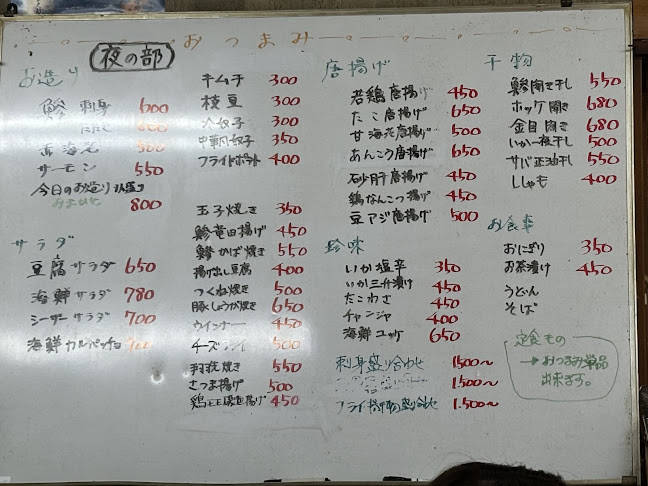 おつまみ
夜の部
お造り
鯵刺身 600
甘海老 500
サーモン 550
今日のお造り
800
サラダ
豆腐サラダ 650
海鮮サラダ 780
シーザーサラダ 700
海鮮カルパッチョ
キムチ 300
枝豆 300
冷奴子 300
中華風奴子 350
フライドポテト 400
玉子焼き 350
鯵竜田揚げ 450
鯵かば焼き 550
揚げ出し豆腐 400
つくね焼き 500
豚しょうが焼き 650
ウインナー 450
チーズフライ 500
羽焼き 550
さつま揚げ 500
揚げ 450
唐揚げ
若鶏唐揚げ 450
たこ唐揚げ 650
甘海老唐揚げ 500
あんこう唐揚げ 650
砂肝唐揚げ 450
鶏なんこつ揚げ 450
豆アジ唐揚げ 500
珍味
いか塩辛 350
いか三升漬け 450
たこわさ 450
チャンジャ 400
海鮮ユッケ 650
刺身盛り合わせ 1500〜
1,500〜
フライ盛り合わせ 1,500〜
干物
鯵開き干し 550
ホッケ開き 680
金目開き 680
いか一夜干し 500
サバ正油干し 550
ししゃも 400
お食事
おにぎり 350
お茶漬け 450
うどん
そば
定食もの
→おつまみ単品
出来ます。